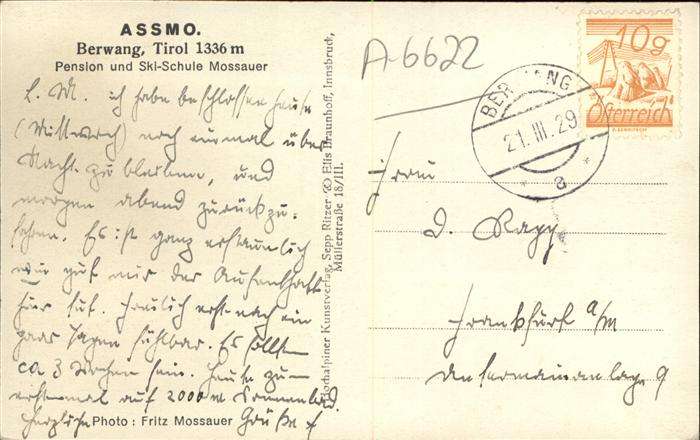 ASSMO.
Berwang, Tirol 1336 m
Pension und Ski-Schule Mossauer
L. M. ich habe beschlossen heute
(Mittwoch) noch einmal über
Nacht zu bleiben, und
morgen abend zurückzu-
fahren. Es ist ganz erstaunlich
wie gut mir der Aufenthalt
hier tut. Freilich erst nach ein
paar Tagen fühlbar. Es sollten
ca 3 Wochen sein. Heute zu-
erst mal auf 2000 m Sonnenbad.
Herzliche Grüße
Photo: Fritz Mossauer
Hochalpiner Kunstverlag, Sepp Ritzer & Elis Braunhoff, Innsbruck,
Müllerstraße 18/III.
A-6622
BERWANG
21.III.29
a
10g
Österreich
Frau
D. Rapp
Frankfurt a/M
Untermainanlage 9